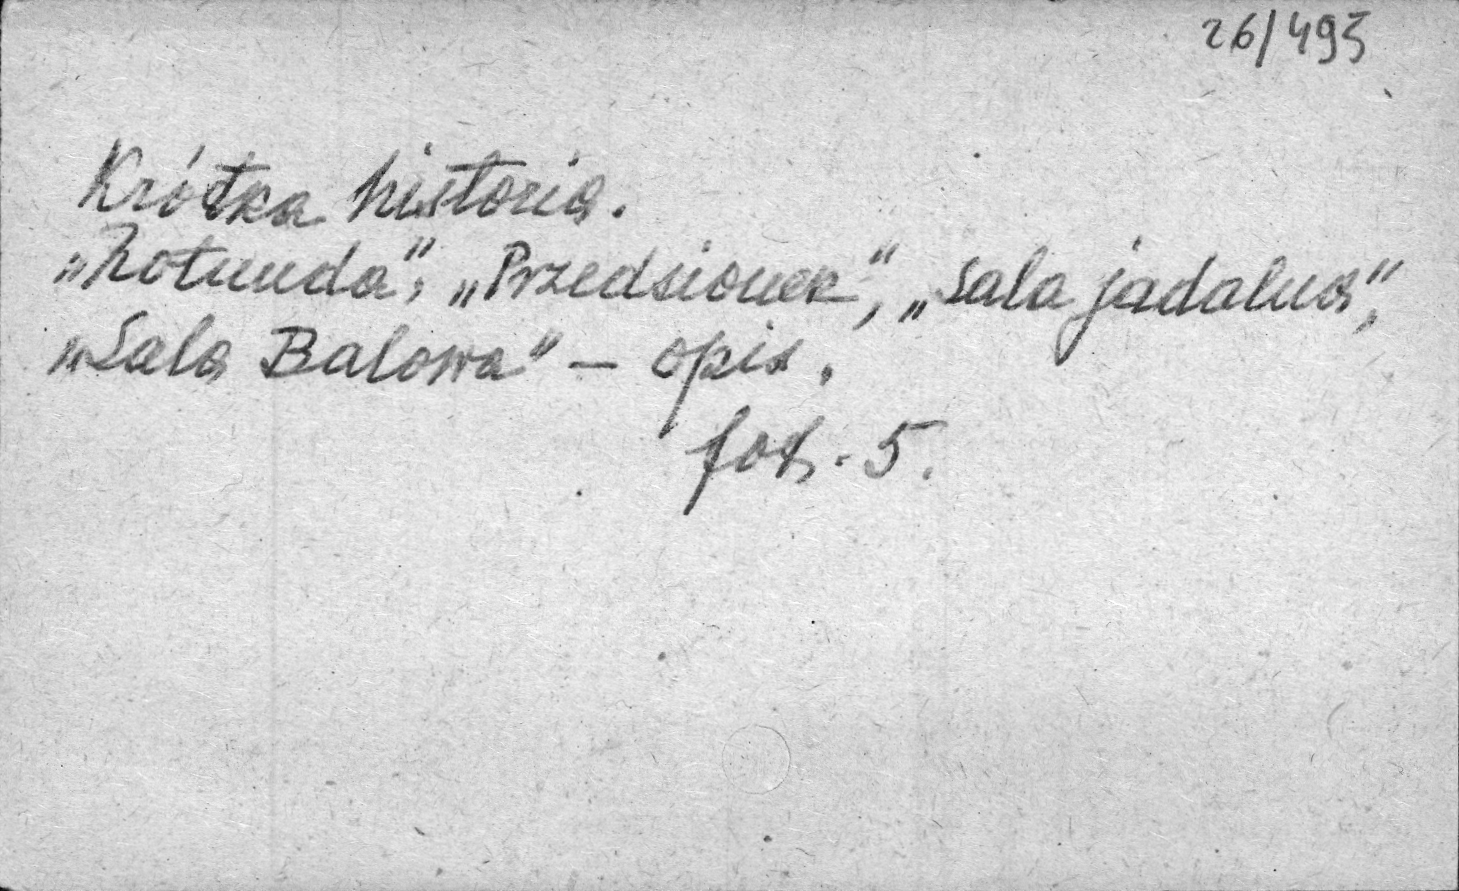 26/495
Krótka historia.
„Rotunda”, „Przedsionek”, „Sala jadalna”,
„Sala Balowa” – opis.
fot. 5.